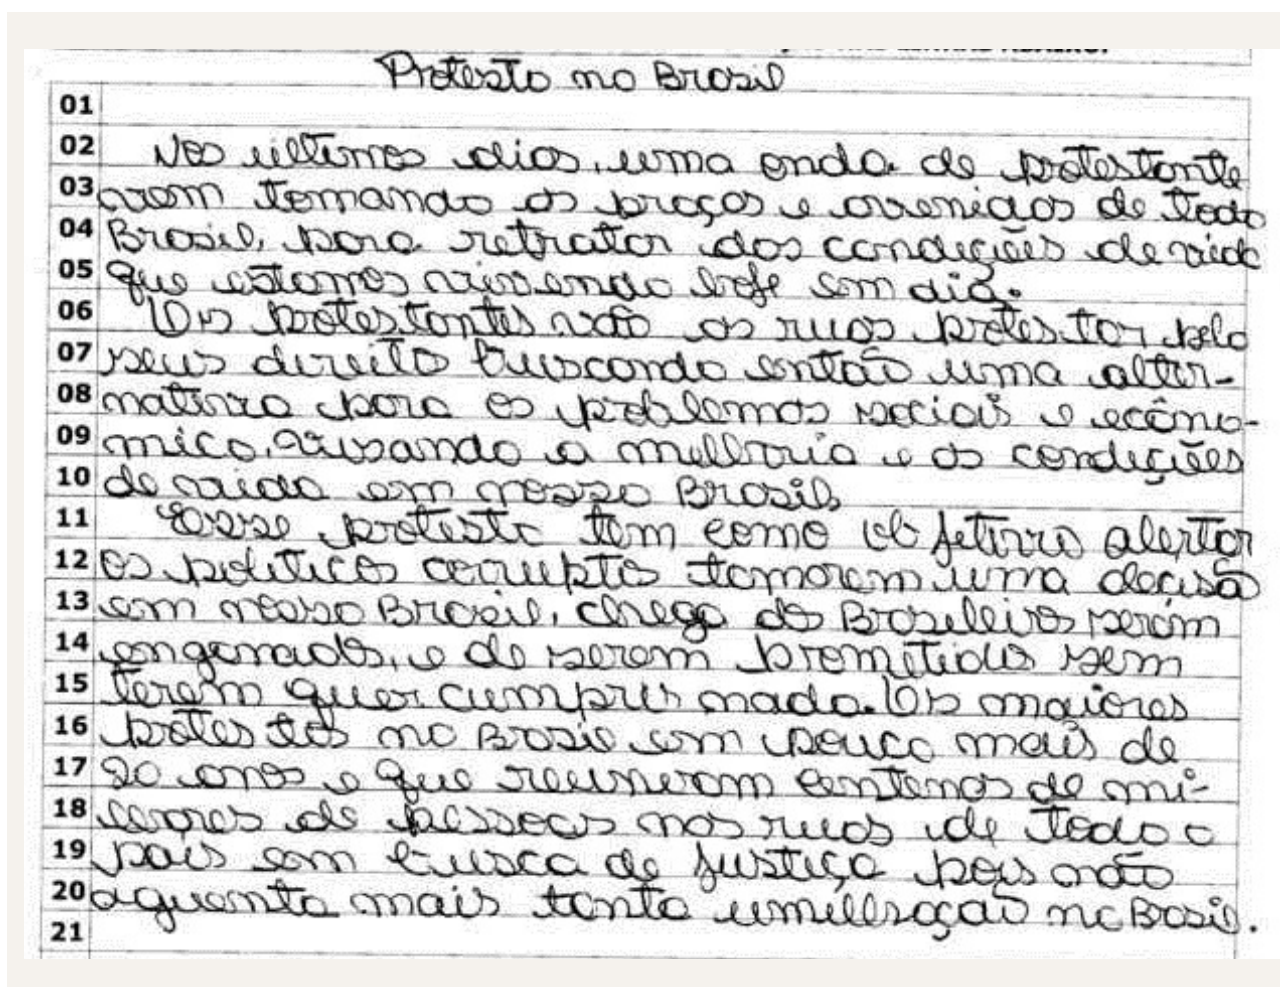 Protesto no Brasil
01
02 Nos últimos dias, uma onda de protestante
03 vem tomando as praças e avenidas de todo
04 Brasil, para retratar das condições de vida
05 que estamos vivendo hoje em dia.
06 Os protestantes vão as ruas protestar pelo
07 seus direito buscando então uma alter-
08 nativa para os problemas sociais e econo-
09 mico, visando a melhoria e as condições
10 de vida em nosso Brasil,
11 Esse protesto tem como objetivo alertar
12 os politicos corruptos tomarem uma decisã
13 em nosso Brasil, chega do Brasileiros serem
14 enganados, e de serem prometidos sem
15 terem quer cumpris nada. Os maiores
16 protestos no Brasil em pouco mais de
17 20 anos e que reuniram centenas de mi-
18 lhares de pessoas nas ruas de todo o
19 pais em busca de justiça pois não
20 aguenta mais tanta umilhação no Brasil.
21